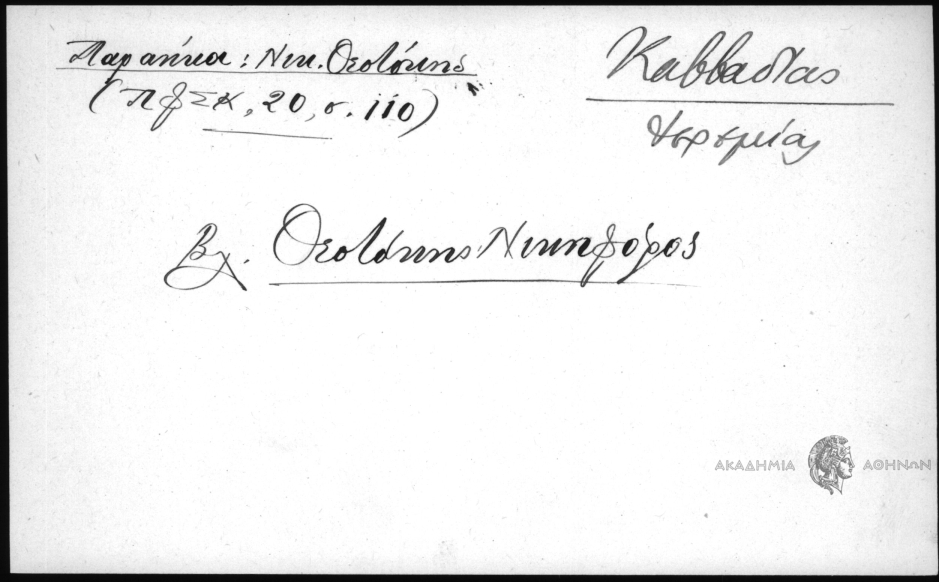 Παρανίκα: Νικ. Θεοτόκης
(ΠΦΣΚ, 20, σ. 110)
Καββαδίας
Ἱερεμίας
Βλ. Θεοτόκης Νικηφόρος
ΑΚΑΔΗΜΙΑ ΑΘΗΝΩΝ